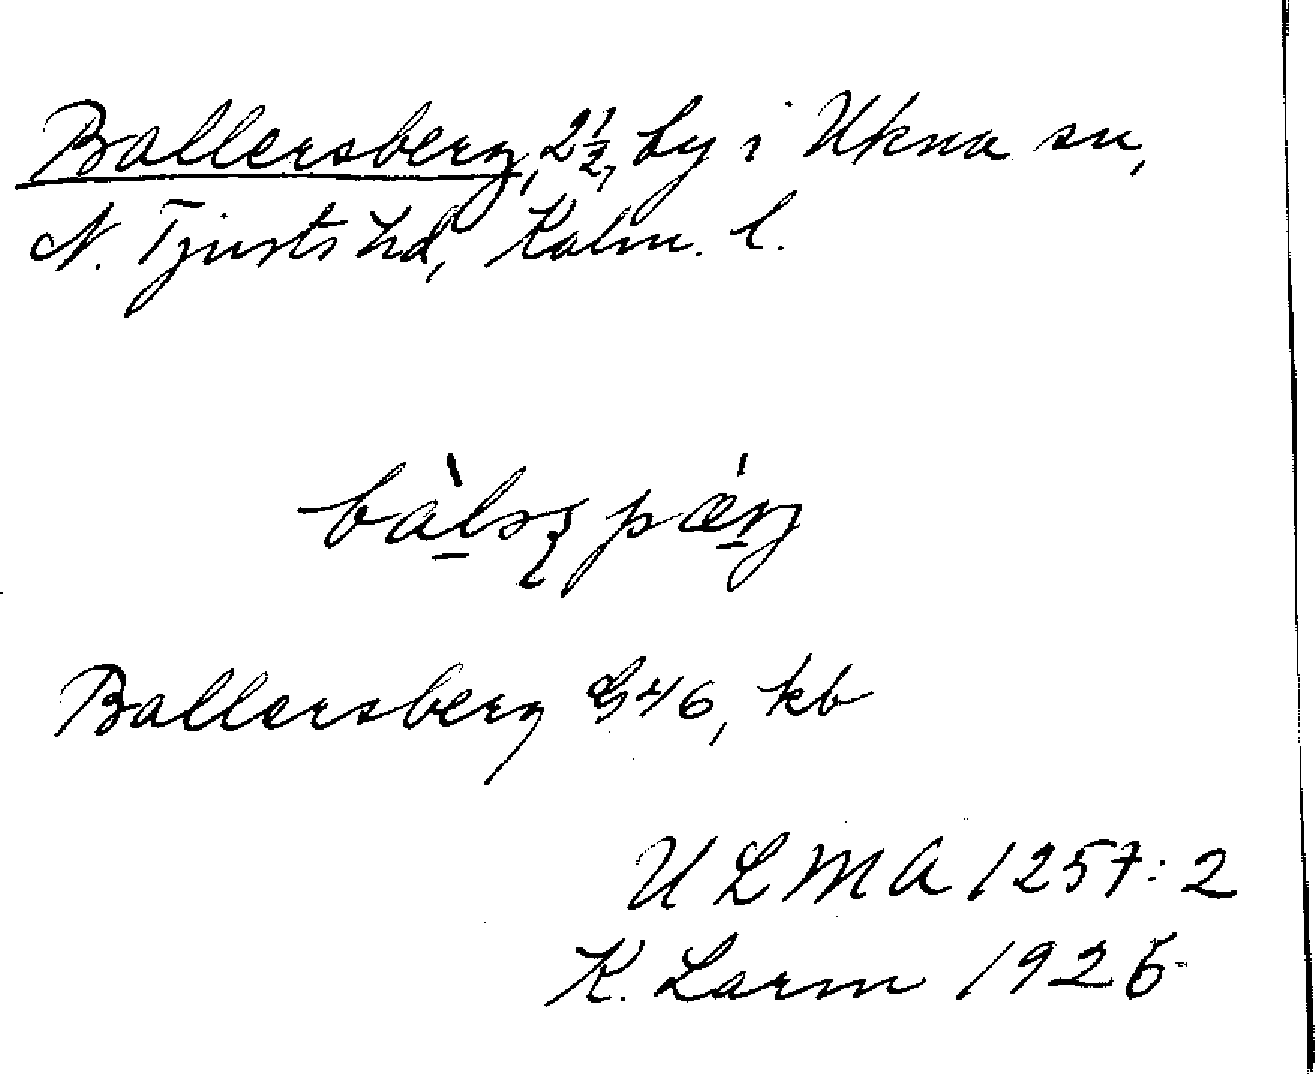 Ballersberg, 2½, by i Ukna sn,
N. Tjusts hd, Kalm. l.
Ballersberg 46, kb
ULMA 1257:2
K. Larm 1925